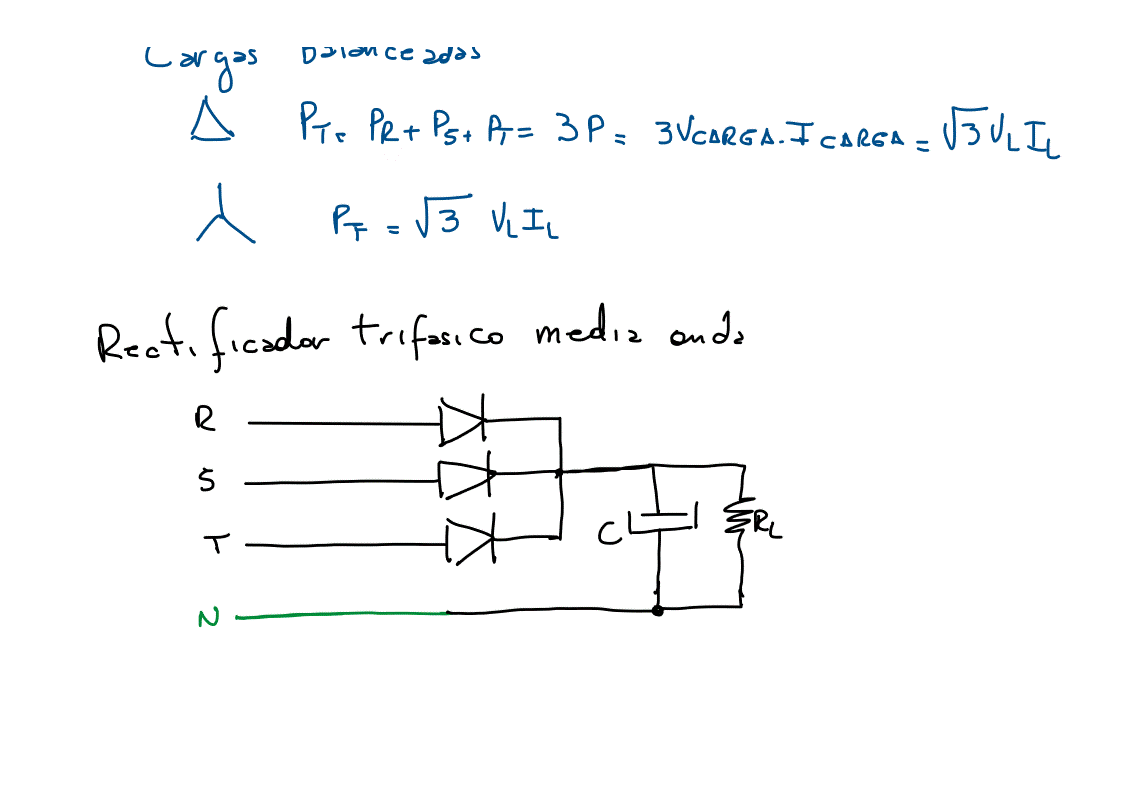 Cargas Balanceadas
PT = PR + PS + PT = 3P = 3VCARGA . ICARGA = √3 VL IL
PT = √3 VL IL
Rectificador trifasico media onda
R
S
T
C
RL
N